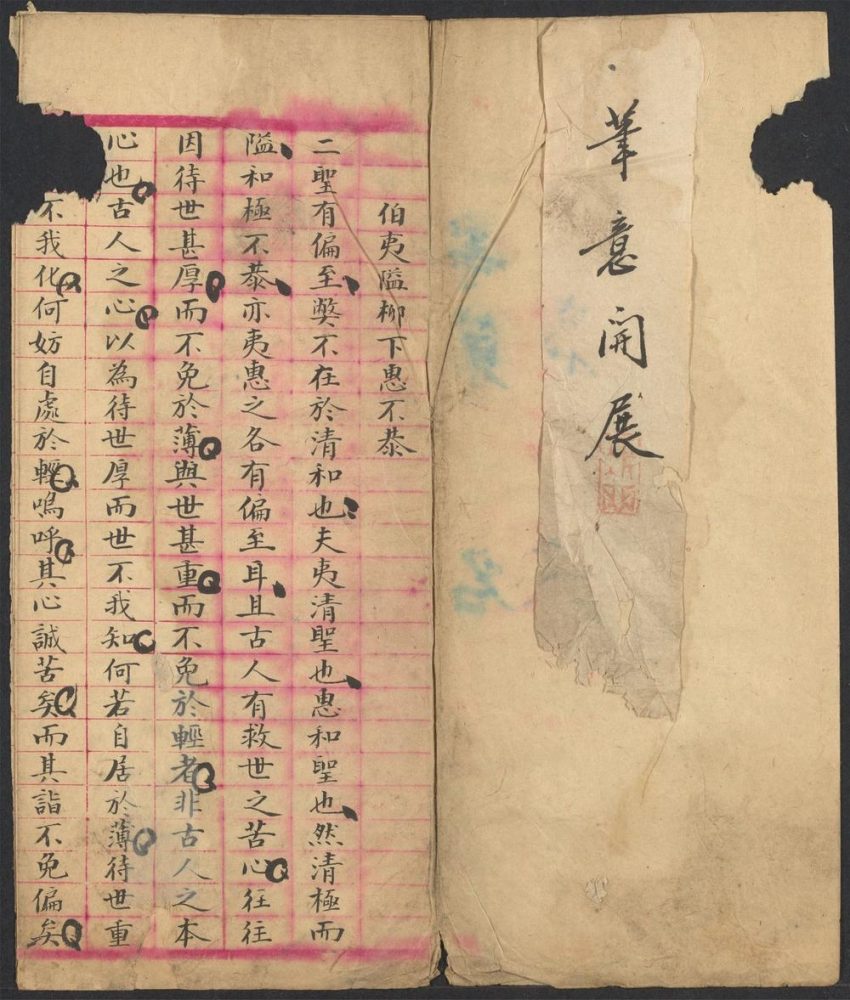 筆意開展
伯夷隘柳下惠不恭
二聖有偏至獘不在於清和也夫夷清聖也惠和聖也然清極而
隘和極不恭亦夷惠之各有偏至耳且古人有救世之苦心往往
因待世甚厚而不免於薄與世甚重而不免於輕者非古人之本
心也古人之心以為待世厚而世不我知何若自居於薄待世重
不我化何妨自處於輕嗚呼其心誠苦矣而其詣不免偏矣